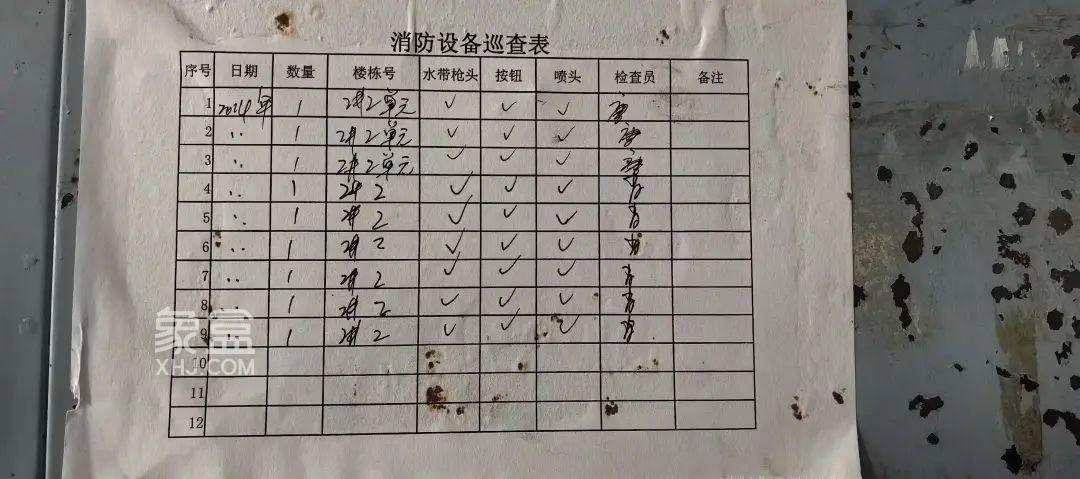 消防设备巡查表
序号 日期 数量 楼栋号 水带枪头 按钮 喷头 检查员 备注
1 2024年 1 2# 2单元 ✓ ✓ ✓
2 ·· 1 2# 2单元 ✓ ✓ ✓
3 ·· 1 2# 2单元 ✓ ✓ ✓
4 ·· 1 2# 2 ✓ ✓ ✓
5 ·· 1 2# 2 ✓ ✓ ✓
6 ·· 1 2# 2 ✓ ✓ ✓
7 ·· 1 2# 2 ✓ ✓ ✓
8 ·· 1 2# 2 ✓ ✓ ✓
9 1 2# 2 ✓ ✓ ✓
10
11
12
象盒
XHJ.COM